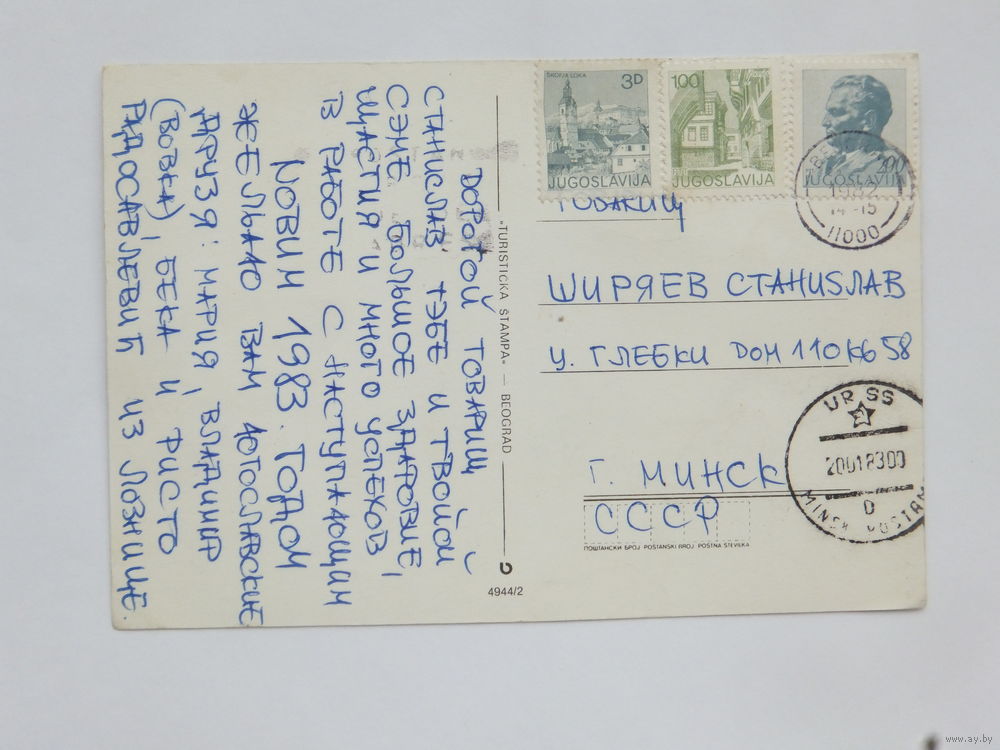 ДОРОГОЙ ТОВАРИЩ
СТАНИСЛАВ ТЭБЕ И ТВОЙОЙ
СЭМЕ БОЛЬШОЕ ЗДАРОВИЕ,
ЩАСТИЯ И МНОГО УСПЕХОВ
В РАБОТЕ С НАСТУПАЮЩИМ
NОВИМ 1983. ГОДОМ
ЖЕЛЬАЮ ВАМ ЮГОСЛАВСКИЕ
ДРУЗЯ: МАРИЯ, ВЛАДИМИР
(ВОВКА), БЕКА И РИСТО
РАДОСАВЛЕВИЋ ИЗ ЛОЗНИЦЕ.
"TURISTIČKA ŠTAMPA" — BEOGRAD
4944/2
ŠKOFJA LOKA
3D
JUGOSLAVIJA
100
JUGOSLAVIJA
JUGOSLAVIJA
1982
14 -15
11000
ТОВАРИЩ
ШИРЯЕВ СТАНИSЛАВ
У. ГЛЕБКИ ДОМ 110 КБ 58
Г. МИНСК
СССР
ПОШТАНСКИ БРОЈ POŠTANSKI BROJ POŠTNA ŠTEVILKA
UR SS
20018300
D
MINSK POSTAM
www.ay.by